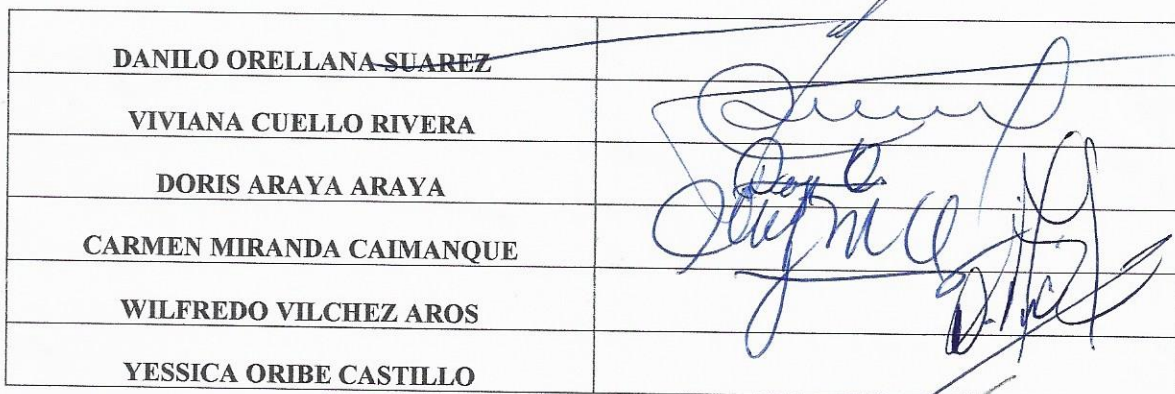 DANILO ORELLANA SUAREZ
VIVIANA CUELLO RIVERA
DORIS ARAYA ARAYA
CARMEN MIRANDA CAIMANQUE
WILFREDO VILCHEZ AROS
YESSICA ORIBE CASTILLO